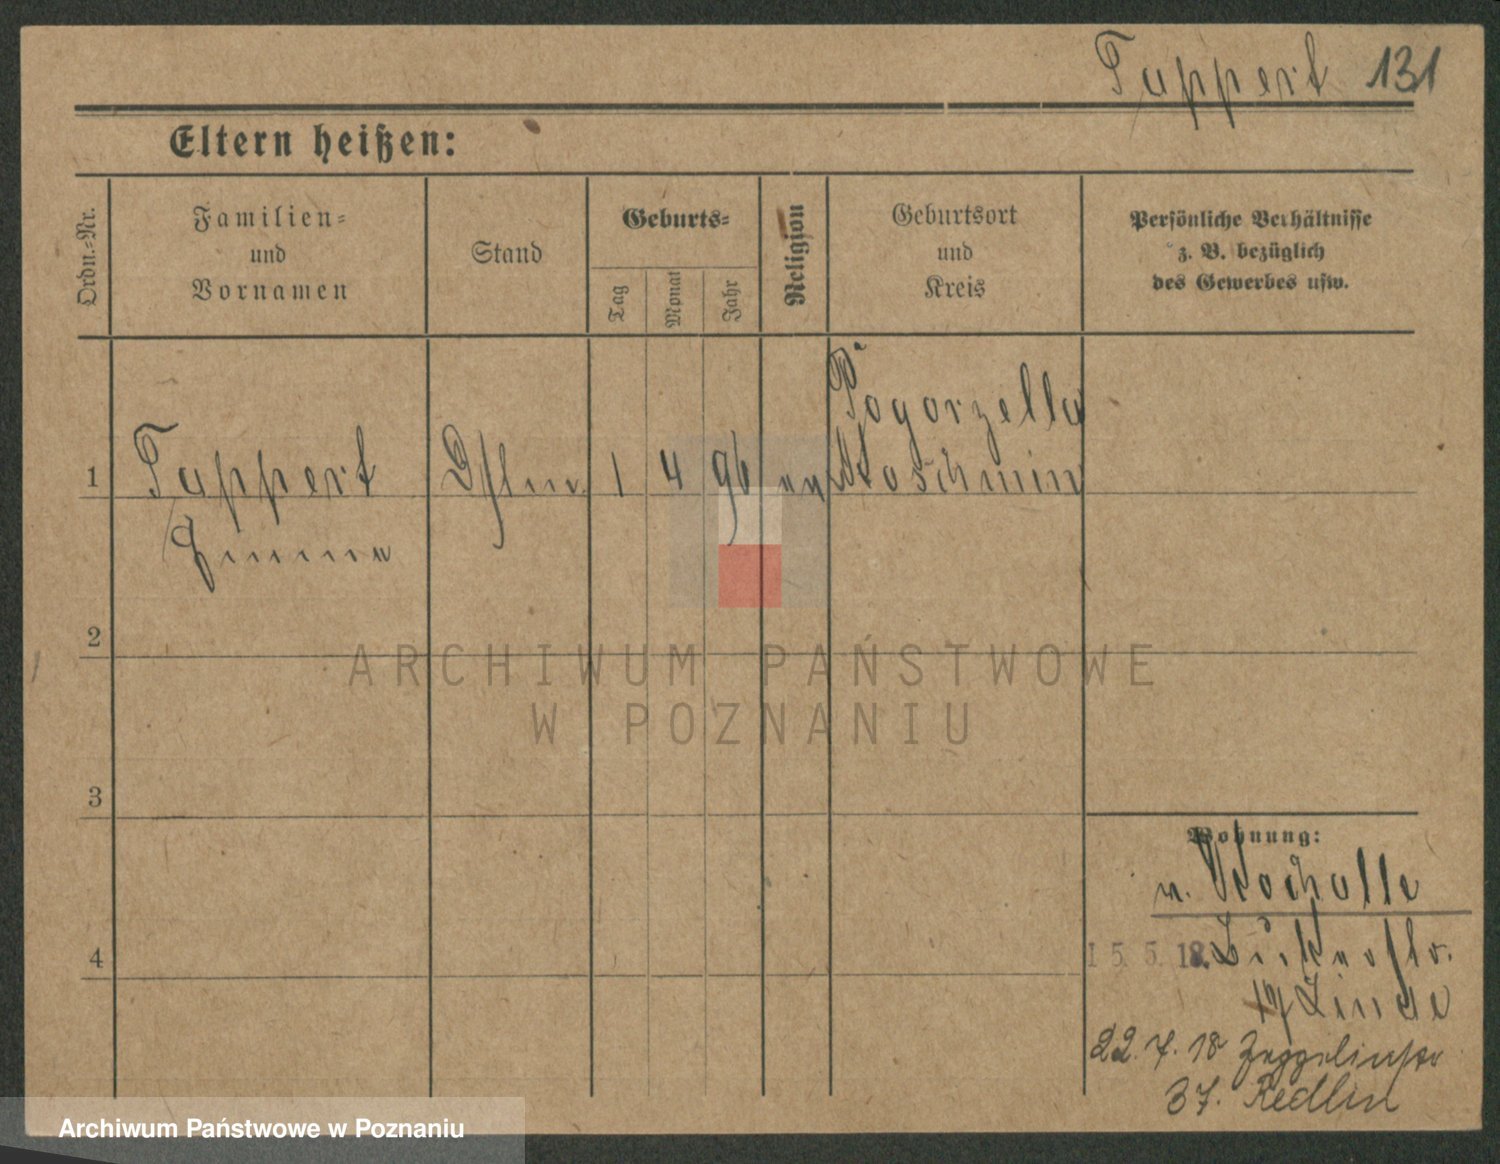 Tappert 131
Eltern heißen:
Ordn.-Nr.
Familien-
und
Vornamen
Stand
Geburts-
Tag
Monat
Jahr
Religion
Geburtsort
und
Kreis
Persönliche Verhältnisse
z. B. bezüglich
des Gewerbes usw.
1 Tappert 1 4 96 Pogorzella
Koschmin
Emma
2
3
4
Wohnung:
15.5.18.
19 Linde
22.7.18 Zeppelinstr
37. Redlin
ARCHIWUM PAŃSTWOWE
W POZNANIU
Archiwum Państwowe w Poznaniu